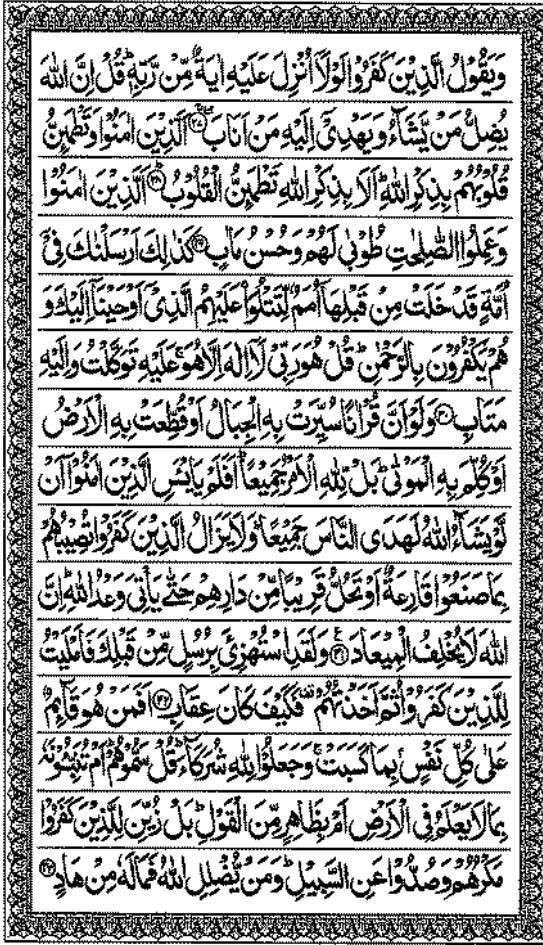 وَيَقُوۡلُ الَّذِيۡنَ كَفَرُوۡا لَوۡلَاۤ اُنۡزِلَ عَلَيۡهِ اٰيَةٌ مِّنۡ رَّبِّهٖ ؕ قُلۡ اِنَّ اللّٰهَ
يُضِلُّ مَنۡ يَّشَآءُ وَيَهۡدِىۡۤ اِلَيۡهِ مَنۡ اَنَابَ ۖ‌ۚ‏﴿۲۷﴾ اَلَّذِيۡنَ اٰمَنُوۡا وَتَطۡمَٮِٕنُّ
قُلُوۡبُهُمۡ بِذِكۡرِ اللّٰهِ ؕ اَلَا بِذِكۡرِ اللّٰهِ تَطۡمَٮِٕنُّ الۡقُلُوۡبُ ؕ‏﴿۲۸﴾ اَلَّذِيۡنَ اٰمَنُوۡا
وَعَمِلُوا الصّٰلِحٰتِ طُوۡبٰى لَهُمۡ وَحُسۡنُ مَاٰبٍ‏﴿۲۹﴾ كَذٰلِكَ اَرۡسَلۡنٰكَ فِىۡۤ
اُمَّةٍ قَدۡ خَلَتۡ مِنۡ قَبۡلِهَاۤ اُمَمٌ لِّـتَتۡلُوَا۟ عَلَيۡهِمُ الَّذِىۡۤ اَوۡحَيۡنَاۤ اِلَيۡكَ وَ
هُمۡ يَكۡفُرُوۡنَ بِالرَّحۡمٰنِ ؕ قُلۡ هُوَ رَبِّىۡ لَاۤ اِلٰهَ اِلَّا هُوَ ۚ عَلَيۡهِ تَوَكَّلۡتُ وَاِلَيۡهِ
مَتَابِ‏﴿۳۰﴾ وَلَوۡ اَنَّ قُرۡاٰنًا سُيِّرَتۡ بِهِ الۡجِبَالُ اَوۡ قُطِّعَتۡ بِهِ الۡاَرۡضُ
اَوۡ كُلِّمَ بِهِ الۡمَوۡتٰى ؕ بَلۡ لِّلّٰهِ الۡاَمۡرُ جَمِيۡعًا ؕ اَفَلَمۡ يَايۡــَٔسِ الَّذِيۡنَ اٰمَنُوۡۤا اَنۡ
لَّوۡ يَشَآءُ اللّٰهُ لَهَدَى النَّاسَ جَمِيۡعًا ؕ وَلَا يَزَالُ الَّذِيۡنَ كَفَرُوۡا تُصِيۡبُهُمۡ
بِمَا صَنَعُوۡا قَارِعَةٌ اَوۡ تَحُلُّ قَرِيۡبًا مِّنۡ دَارِهِمۡ حَتّٰى يَاۡتِىَ وَعۡدُ اللّٰهِ ؕ اِنَّ
اللّٰهَ لَا يُخۡلِفُ الۡمِيۡعَادَ‏﴿۳۱﴾ وَلَـقَدِ اسۡتُهۡزِئَ بِرُسُلٍ مِّنۡ قَبۡلِكَ فَاَمۡلَيۡتُ
لِلَّذِيۡنَ كَفَرُوۡا ثُمَّ اَخَذۡتُهُمۡ فَكَيۡفَ كَانَ عِقَابِ‏﴿۳۲﴾ اَفَمَنۡ هُوَ قَآٮِٕمٌ
عَلٰى كُلِّ نَفۡسٍۢ بِمَا كَسَبَتۡ ۚ وَجَعَلُوۡا لِلّٰهِ شُرَكَآءَ ؕ قُلۡ سَمُّوۡهُمۡ ؕ اَمۡ تُنَـبِّــُٔوۡنَهٗ
بِمَا لَا يَعۡلَمُ فِى الۡاَرۡضِ اَمۡ بِظَاهِرٍ مِّنَ الۡقَوۡلِ ؕ بَلۡ زُيِّنَ لِلَّذِيۡنَ كَفَرُوۡا
مَكۡرُهُمۡ وَصُدُّوۡا عَنِ السَّبِيۡلِ ؕ وَمَنۡ يُّضۡلِلِ اللّٰهُ فَمَا لَهٗ مِنۡ هَادٍ‏﴿۳۳﴾